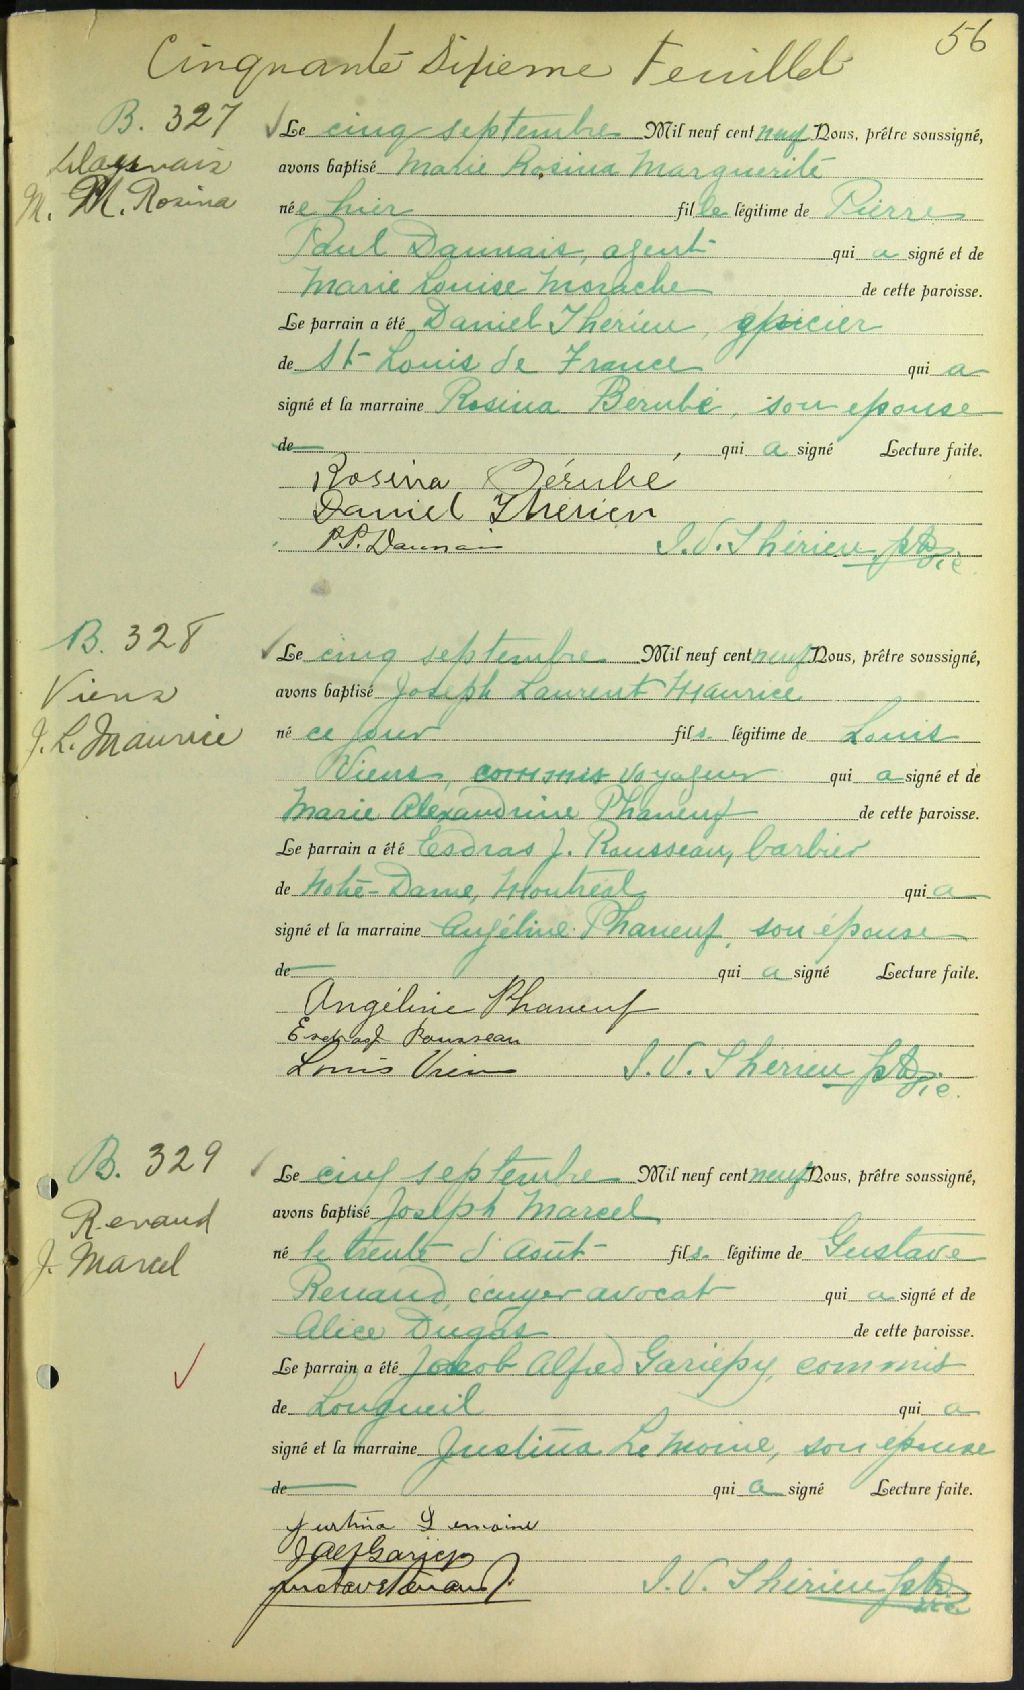 56
Cinquante Sixieme Feuillet
B. 327
M. M. Rosina
Le cinq septembre Mil neuf cent neuf Nous, prêtre soussigné,
avons baptisé Marie Rosina Marguerite
née hier fille légitime de Pierre
Paul Daunais, agent qui a signé et de
Marie Louise Morache de cette paroisse.
Le parrain a été Daniel Therien, épicier
de St-Louis de France qui a
signé et la marraine Rosina Berubé, son epouse
de — qui a signé Lecture faite.
Rosina Bérubé
Daniel Therien
P.P. Daunais
J. V. Thérien ptre vic.
B. 328
Viens
J. L. Maurice
Le cinq septembre Mil neuf cent neuf Nous, prêtre soussigné,
avons baptisé Joseph Laurent Maurice
né ce jour fils légitime de Louis
Viens, commis voyageur qui a signé et de
Marie Alexandrine Phaneuf de cette paroisse.
Le parrain a été Esdras J. Rousseau, barbier
de Notre-Dame, Montréal qui a
signé et la marraine Angéline Phaneuf, son épouse
de — qui a signé Lecture faite.
Angéline Phaneuf
Esdras J Rousseau
Louis Vien
J. V. Therien ptre vic.
B. 329
Renaud
J. Marcel
Le cinq septembre Mil neuf cent neuf Nous, prêtre soussigné,
avons baptisé Joseph Marcel
né le trente d'août fils légitime de Gustave
Renaud, écuyer avocat qui a signé et de
Alice Dugas de cette paroisse.
Le parrain a été Jacob Alfred Gariepy, commis
de Longueil qui a
signé et la marraine Justina LeMoine, son épouse
de — qui a signé Lecture faite.
Justina Lemoine
J Alf Gariepy
Gustave Renaud
J. V. Thérien ptre vic